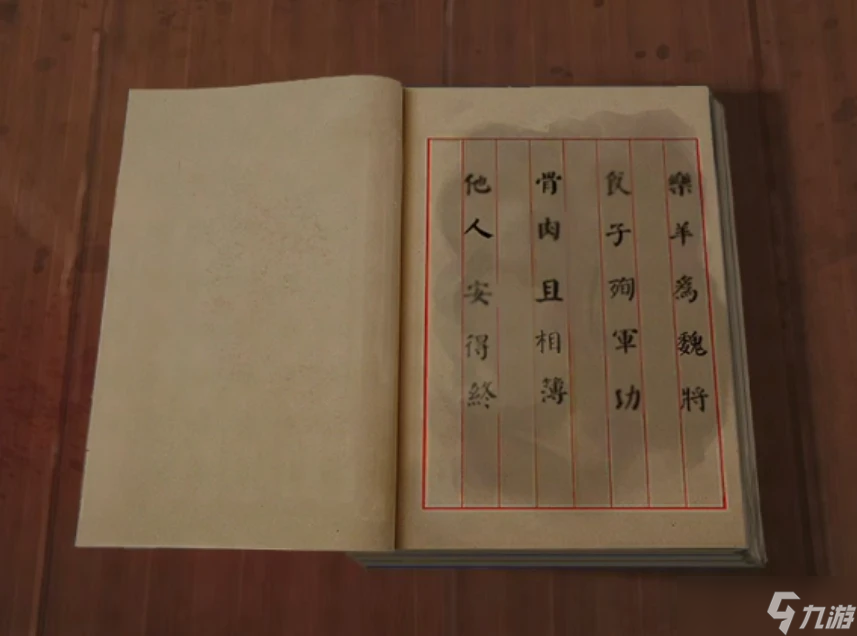 樂羊爲魏將
食子殉軍功
骨肉且相薄
他人安得終
九游